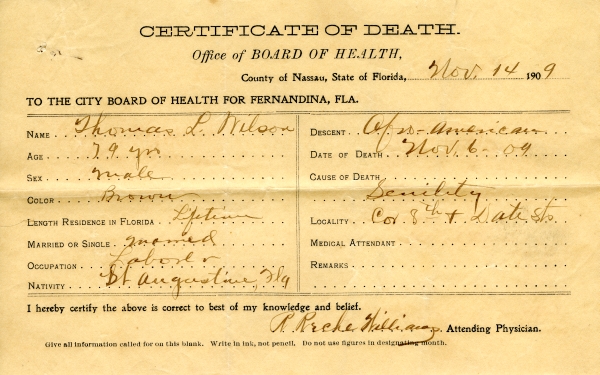 CERTIFICATE OF DEATH.
Office of BOARD OF HEALTH,
County of Nassau, State of Florida, Nov. 14 1909
TO THE CITY BOARD OF HEALTH FOR FERNANDINA, FLA.
NAME Thomas L. Wilson
AGE 79 yrs
SEX male
COLOR Brown
LENGTH RESIDENCE IN FLORIDA Lftime
MARRIED OR SINGLE married
OCCUPATION Laborer
NATIVITY St Augustine, Fla
DESCENT Afro-American
DATE OF DEATH Nov. 6 - 09
CAUSE OF DEATH
Senility
LOCALITY Cor 8th & Date Sts.
MEDICAL ATTENDANT
REMARKS
I hereby certify the above is correct to best of my knowledge and belief.
Williams, Attending Physician.
Give all information called for on this blank. Write in ink, not pencil. Do not use figures in designating month.